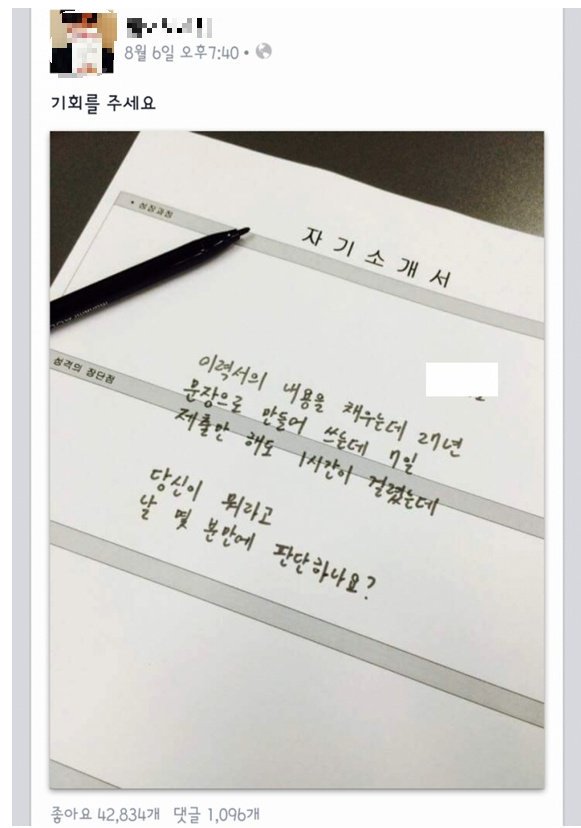 8월 6일 오후7:40 •
기회를 주세요
• 성장과정
자 기 소 개 서
성격의 장단점
이력서의 내용을 채우는데 27년
문장으로 만들어 쓰는데 7일
제출만 해도 1시간이 걸렸는데
당신이 뭐라고
날 몇 분만에 판단하나요?
좋아요 42,834개 댓글 1,096개